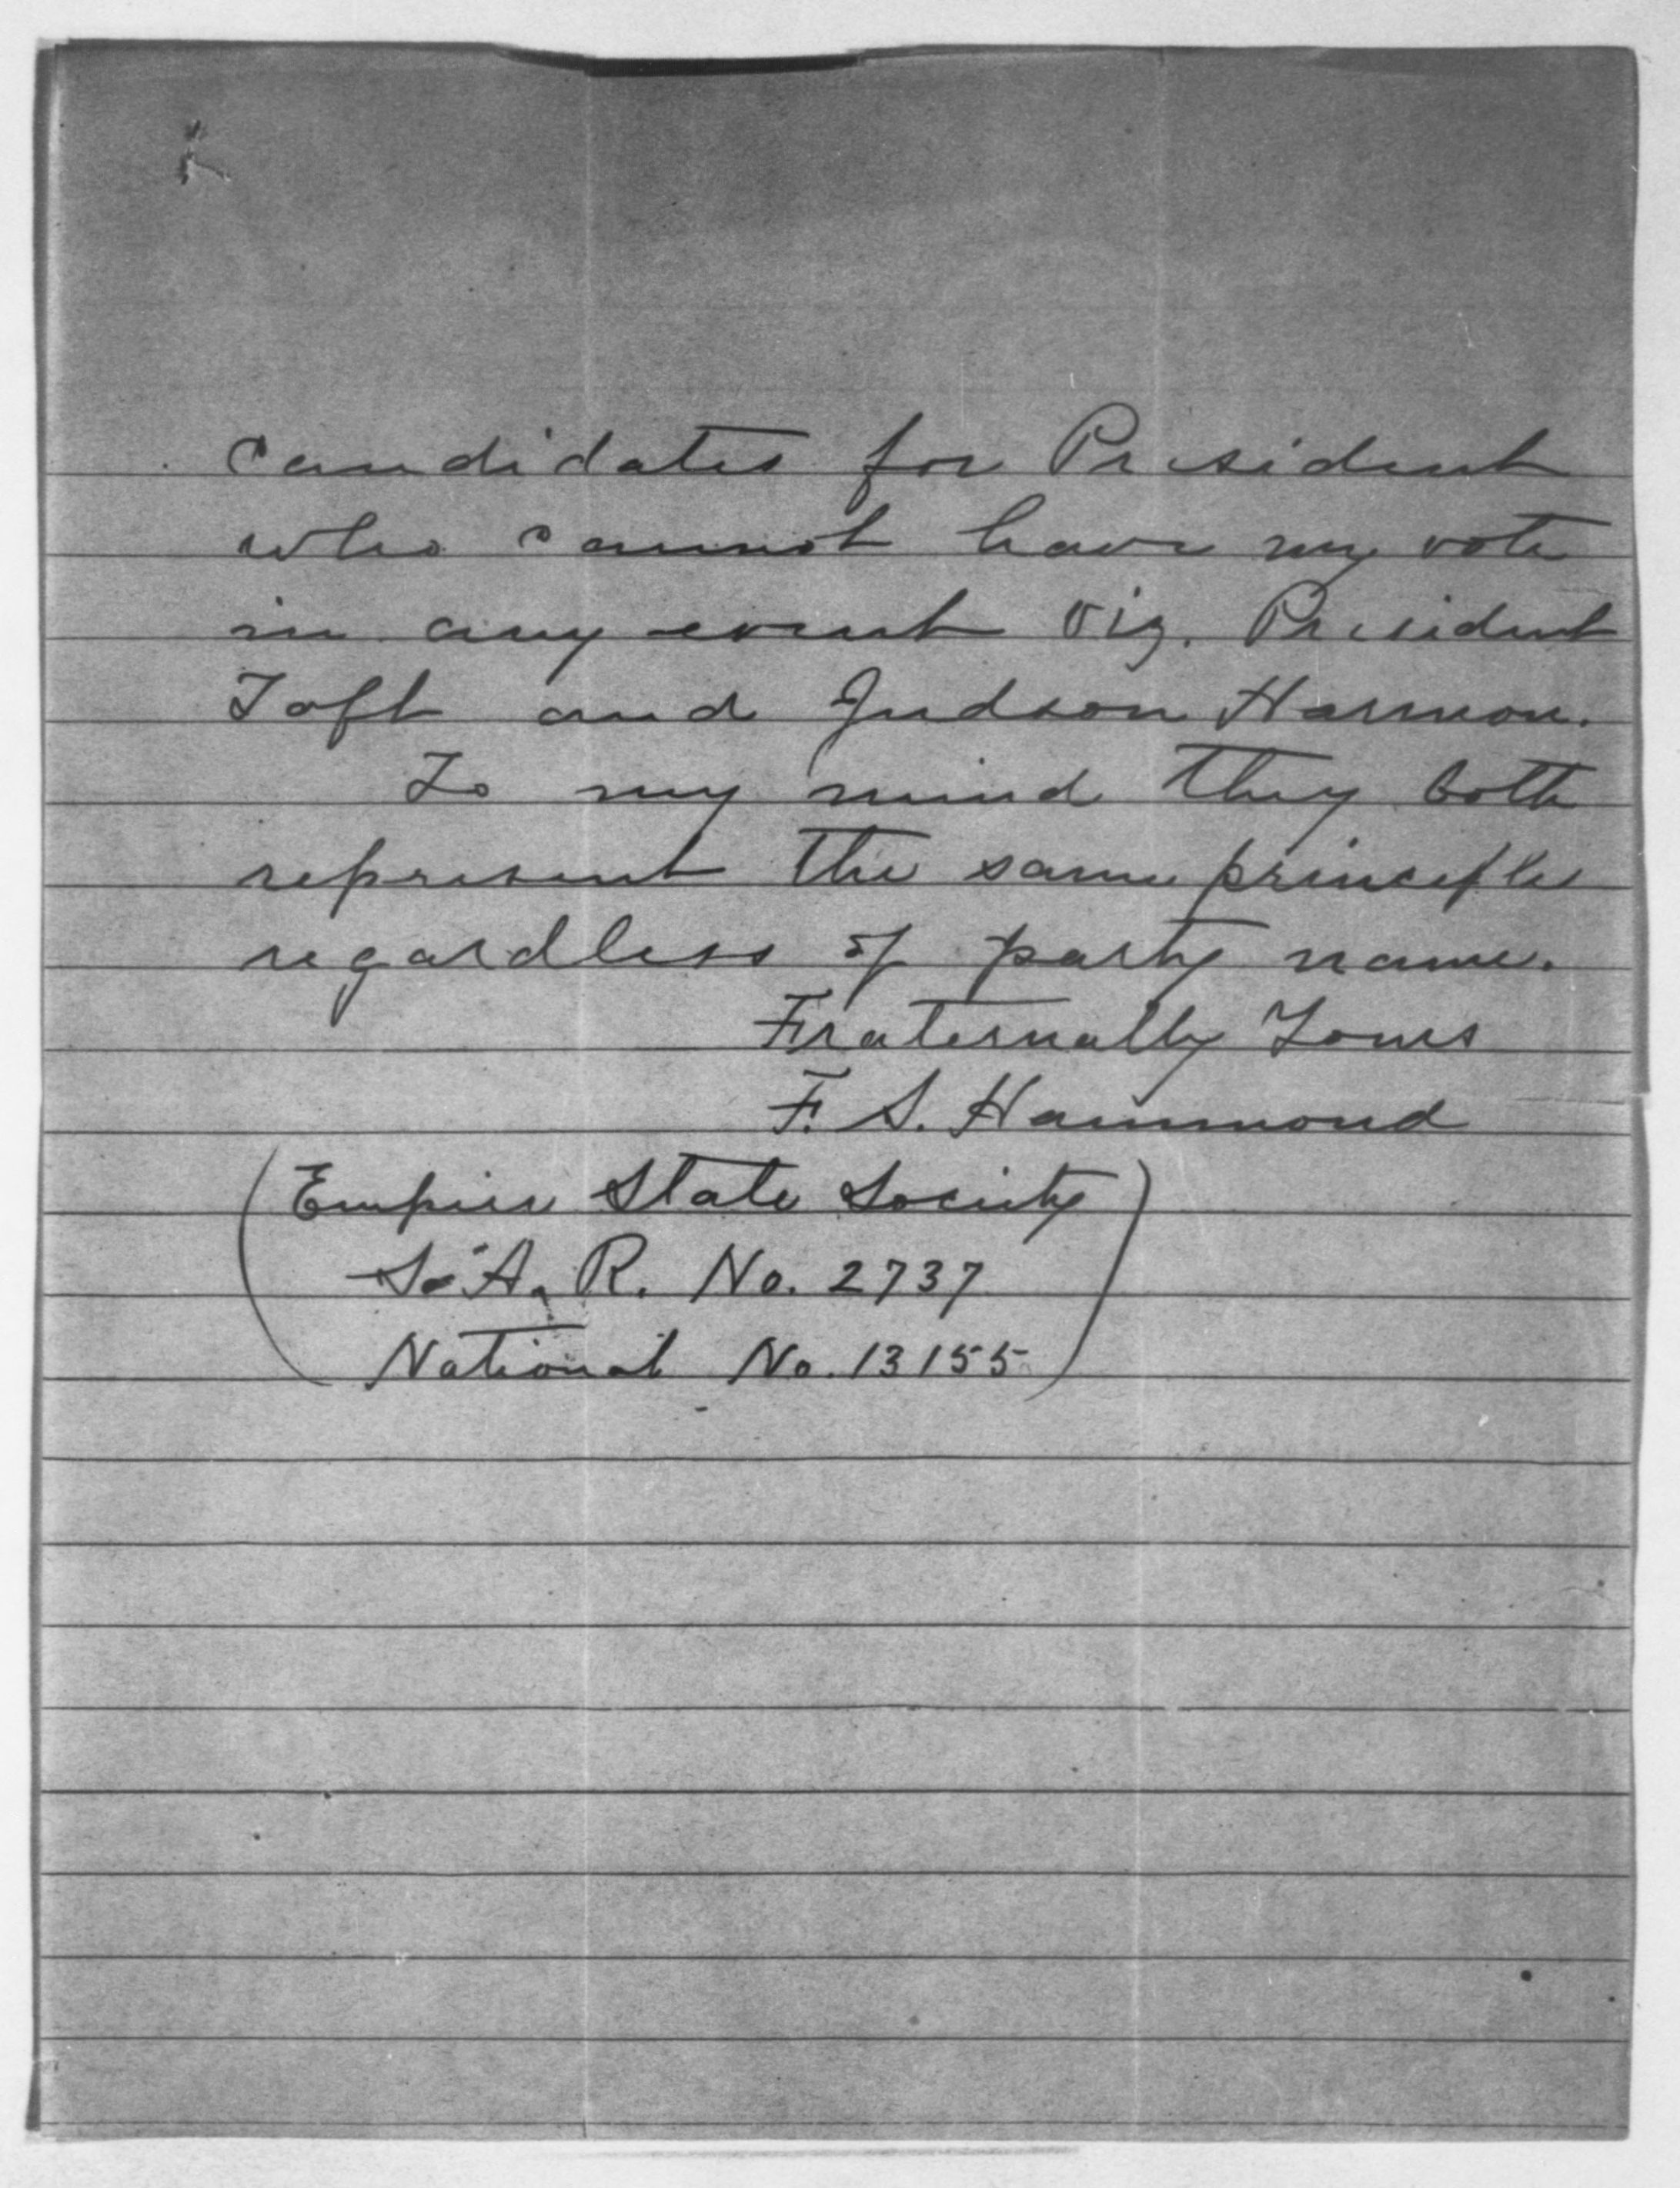 candidates for President
who cannot have my vote
in any event viz. President
Taft and Judson Harmon.
To my mind they both
represent the same principle
regardless of party name.
Fraternally Yours
F. S. Hammond
(Empire State Society
S. A. R. No. 2737
National No. 13155)